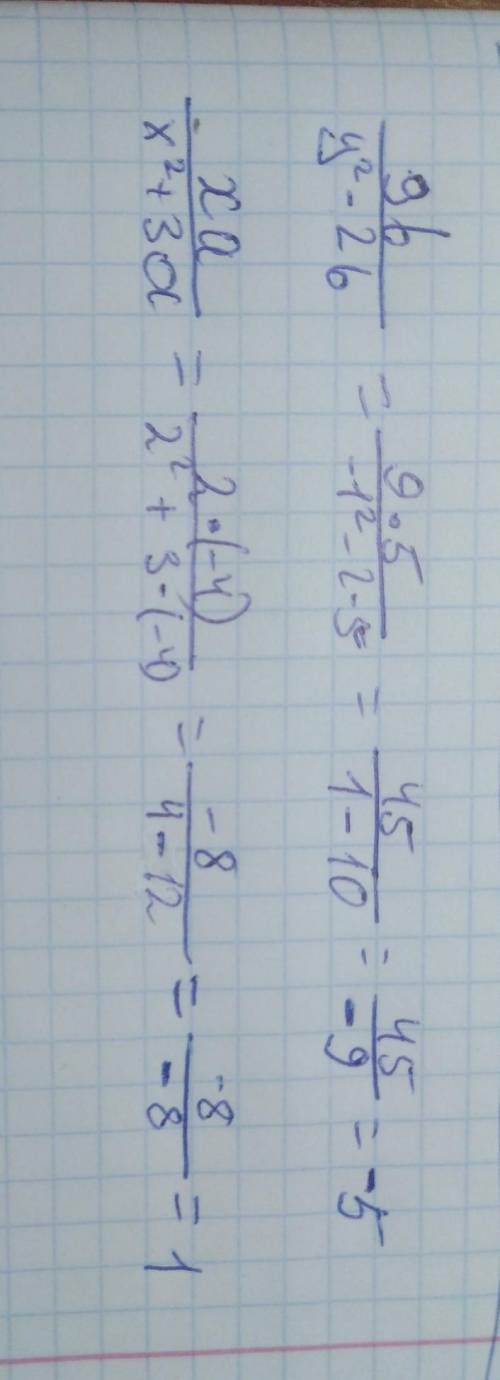 9b / y² - 2b = 9·5 / -1² - 2·5 = 45 / 1 - 10 = 45 / -9 = -5
xa / x² + 3a = 2·(-4) / 2² + 3·(-4) = -8 / 4 - 12 = -8 / -8 = 1